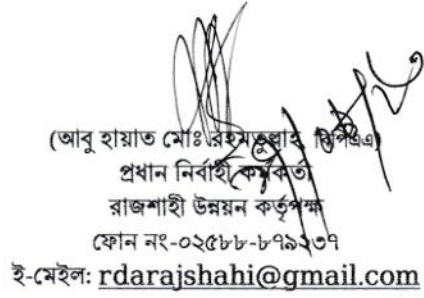 (আবু হায়াত মোঃ রহমতুল্লাহ, বিপিএএ)
প্রধান নির্বাহী কর্মকর্তা
রাজশাহী উন্নয়ন কর্তৃপক্ষ
ফোন নং-০২৫৮৮-৮৭৯২৩৭
ই-মেইল: rdarajshahi@gmail.com